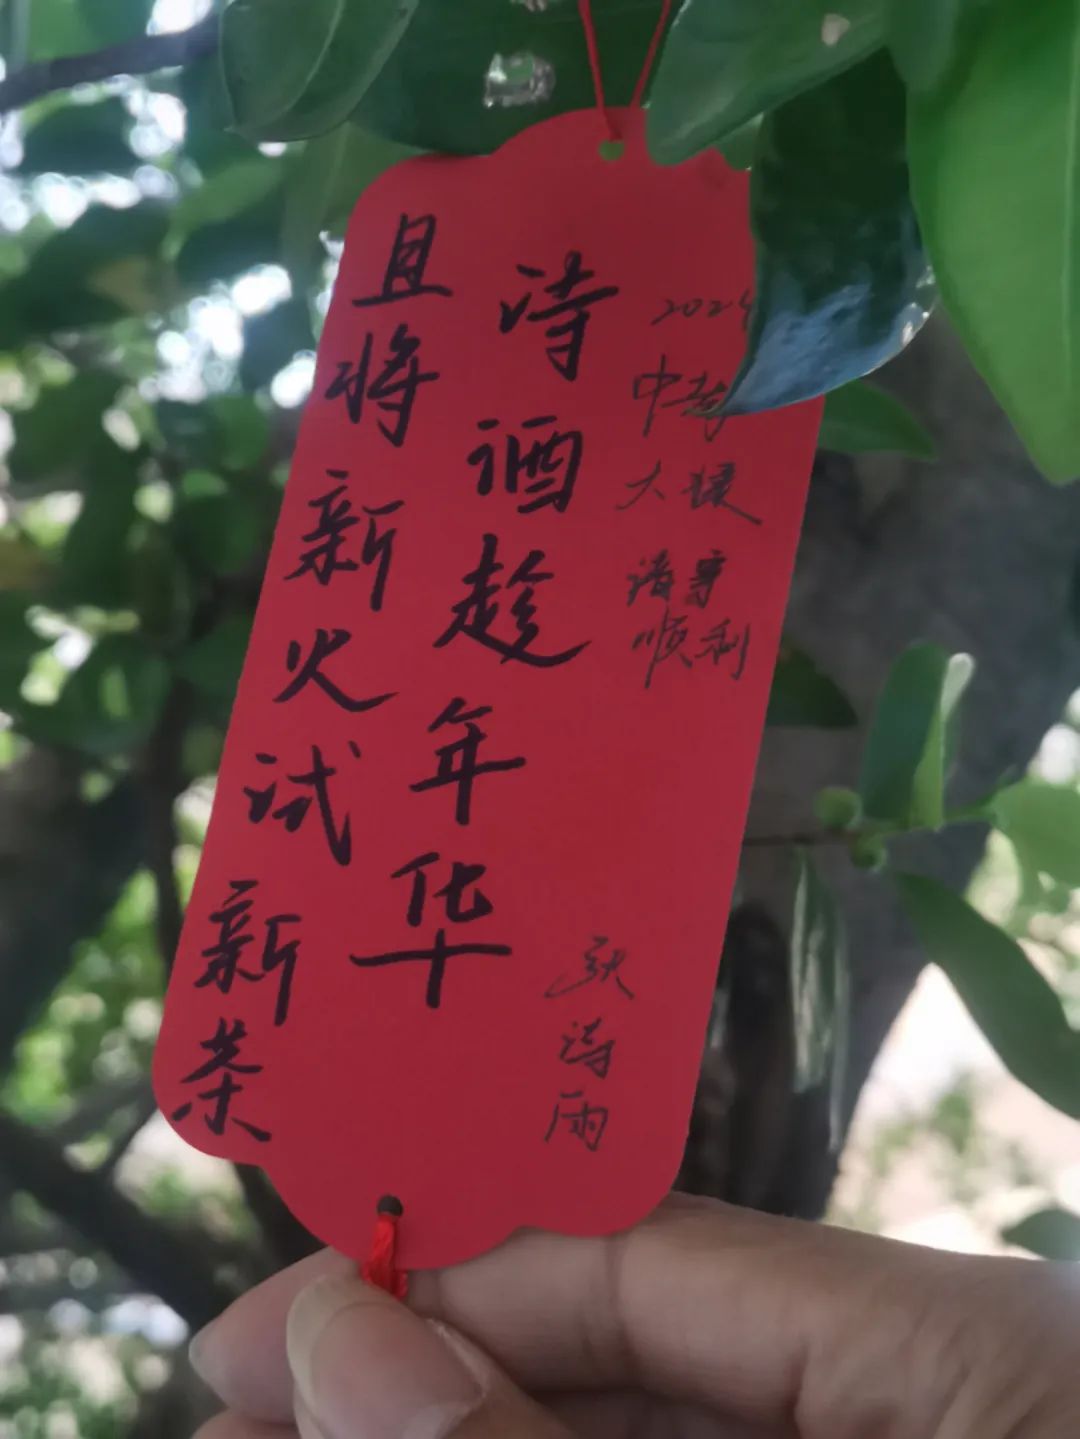 且将新火试新茶
诗酒趁年华
2024
中考
大捷
诸事
顺利
诗雨